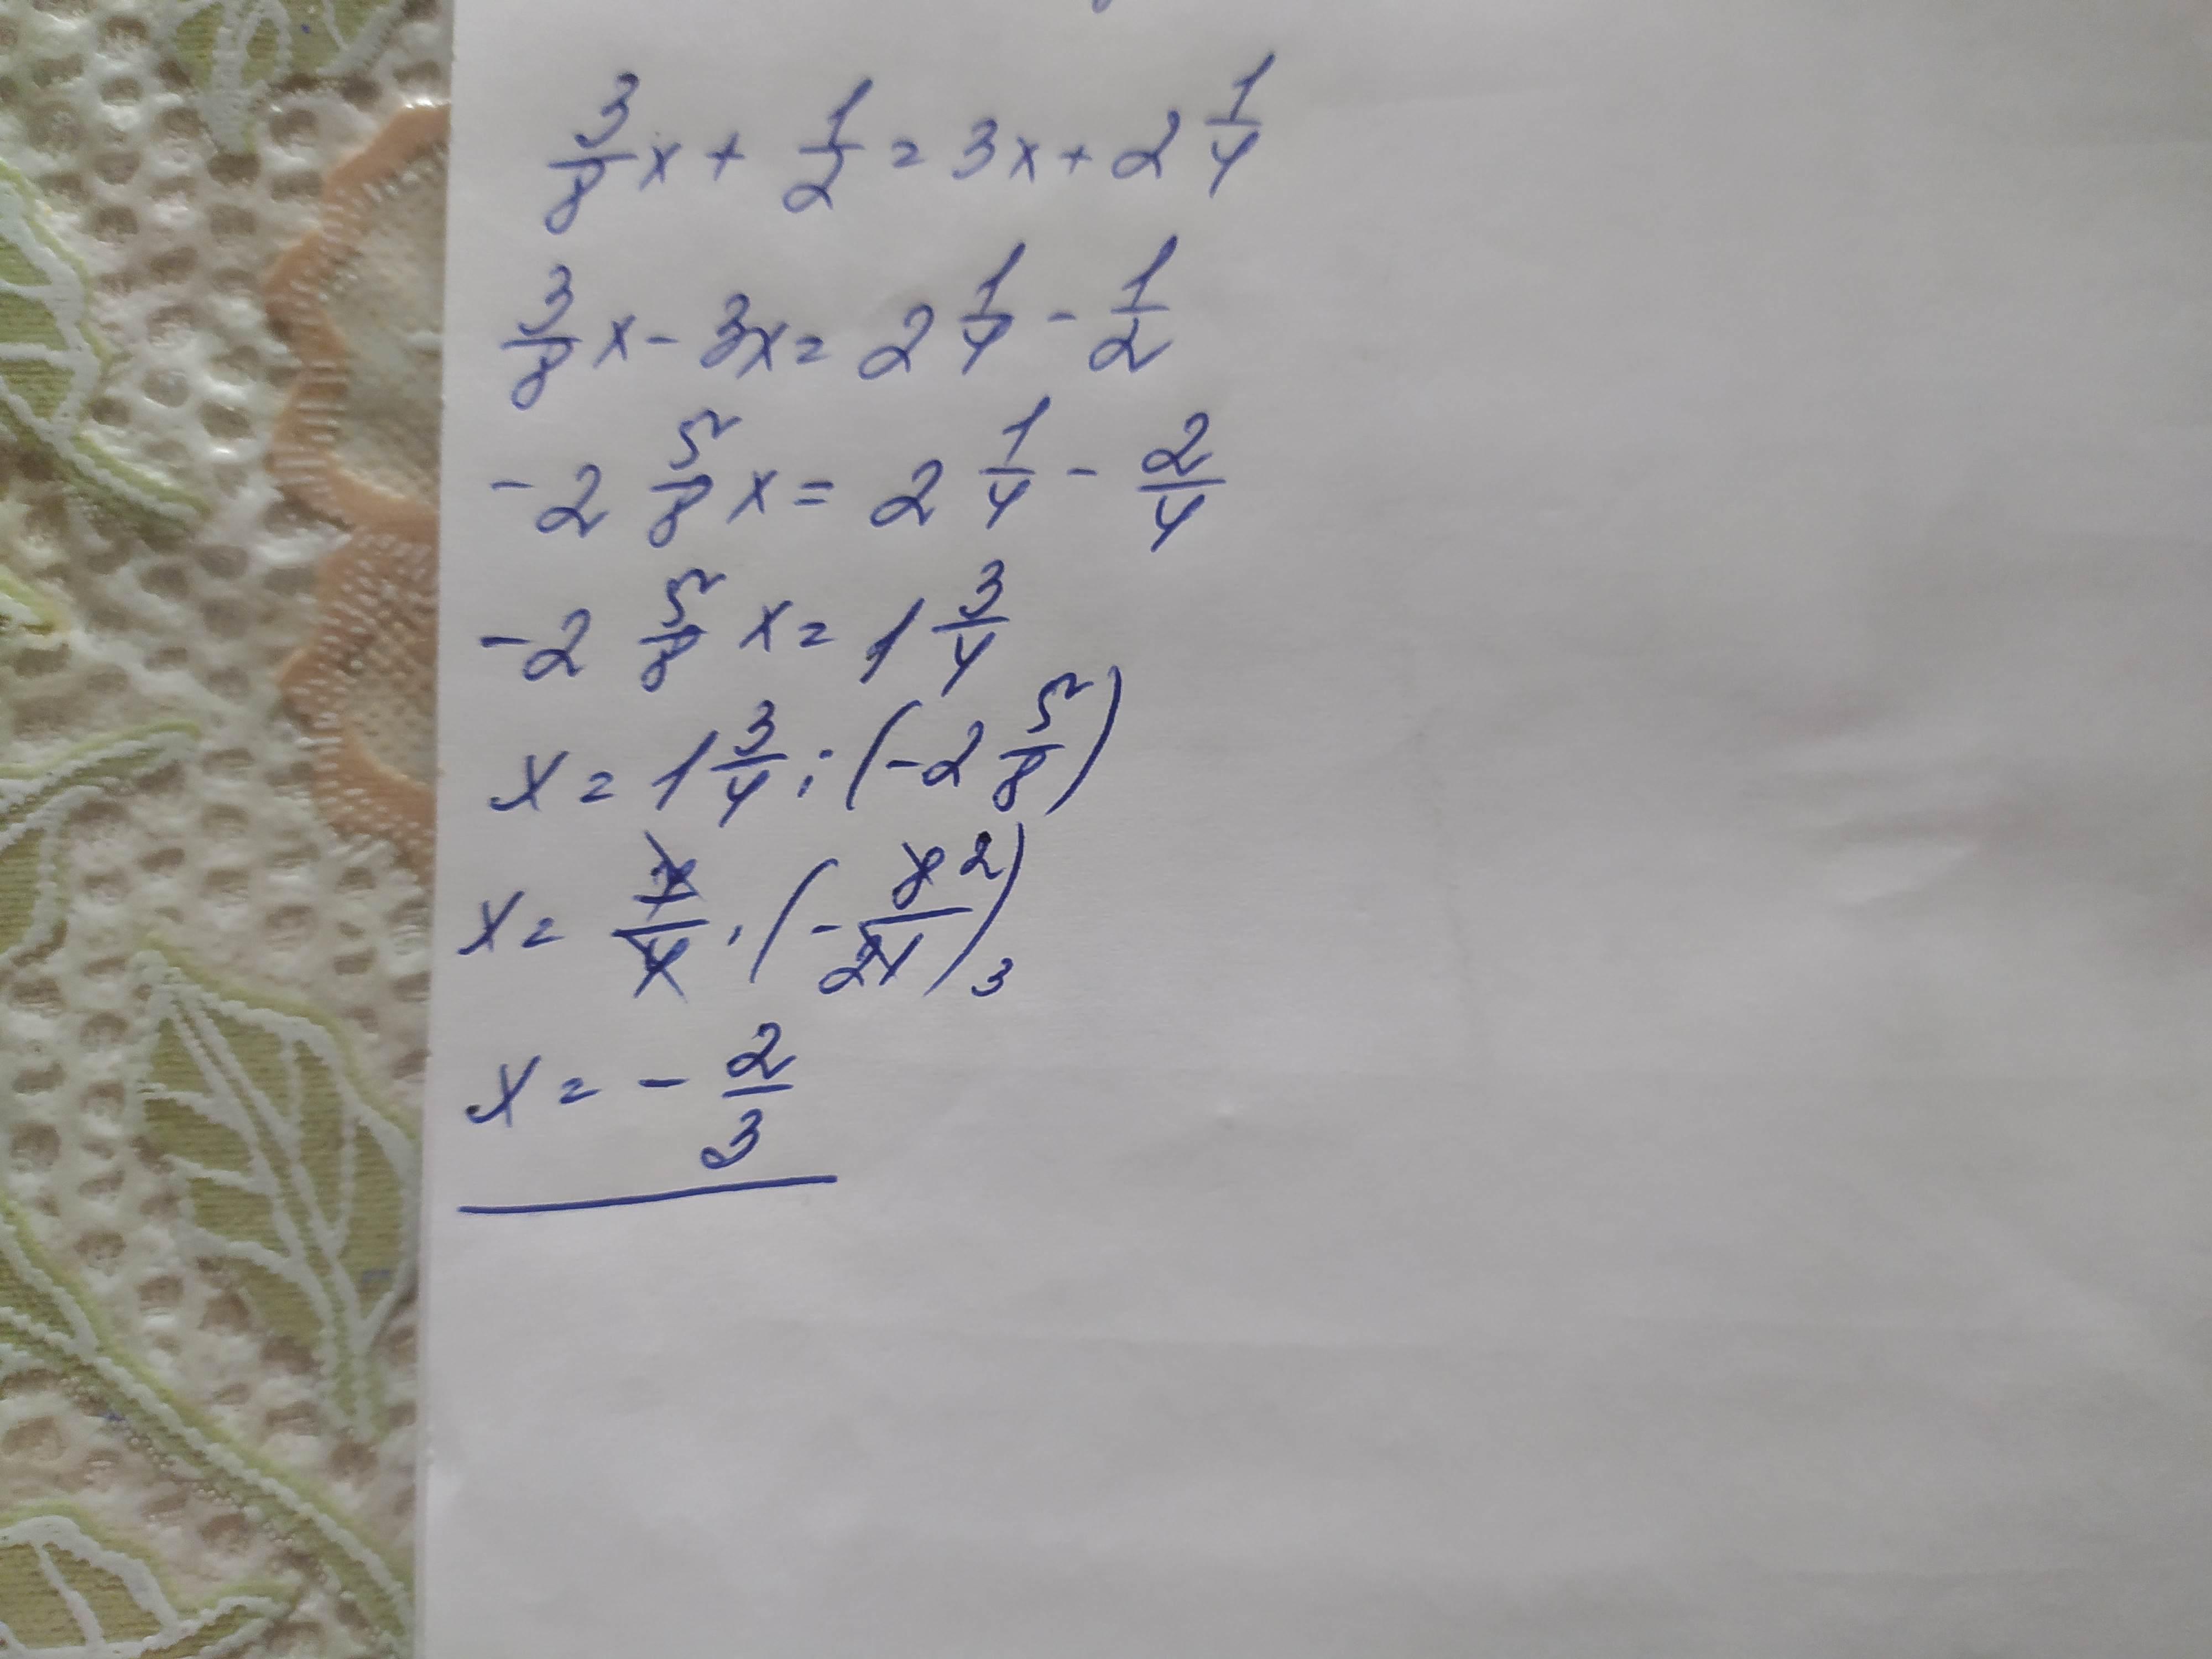 3/8 x + 1/2 = 3x + 2 1/4
3/8 x - 3x = 2 1/4 - 1/2
- 2 5/8 x = 2 1/4 - 2/4
- 2 5/8 x = 1 3/4
x = 1 3/4 : (-2 5/8)
x = 7/4 · (- 8 2/21 3)
x = - 2/3